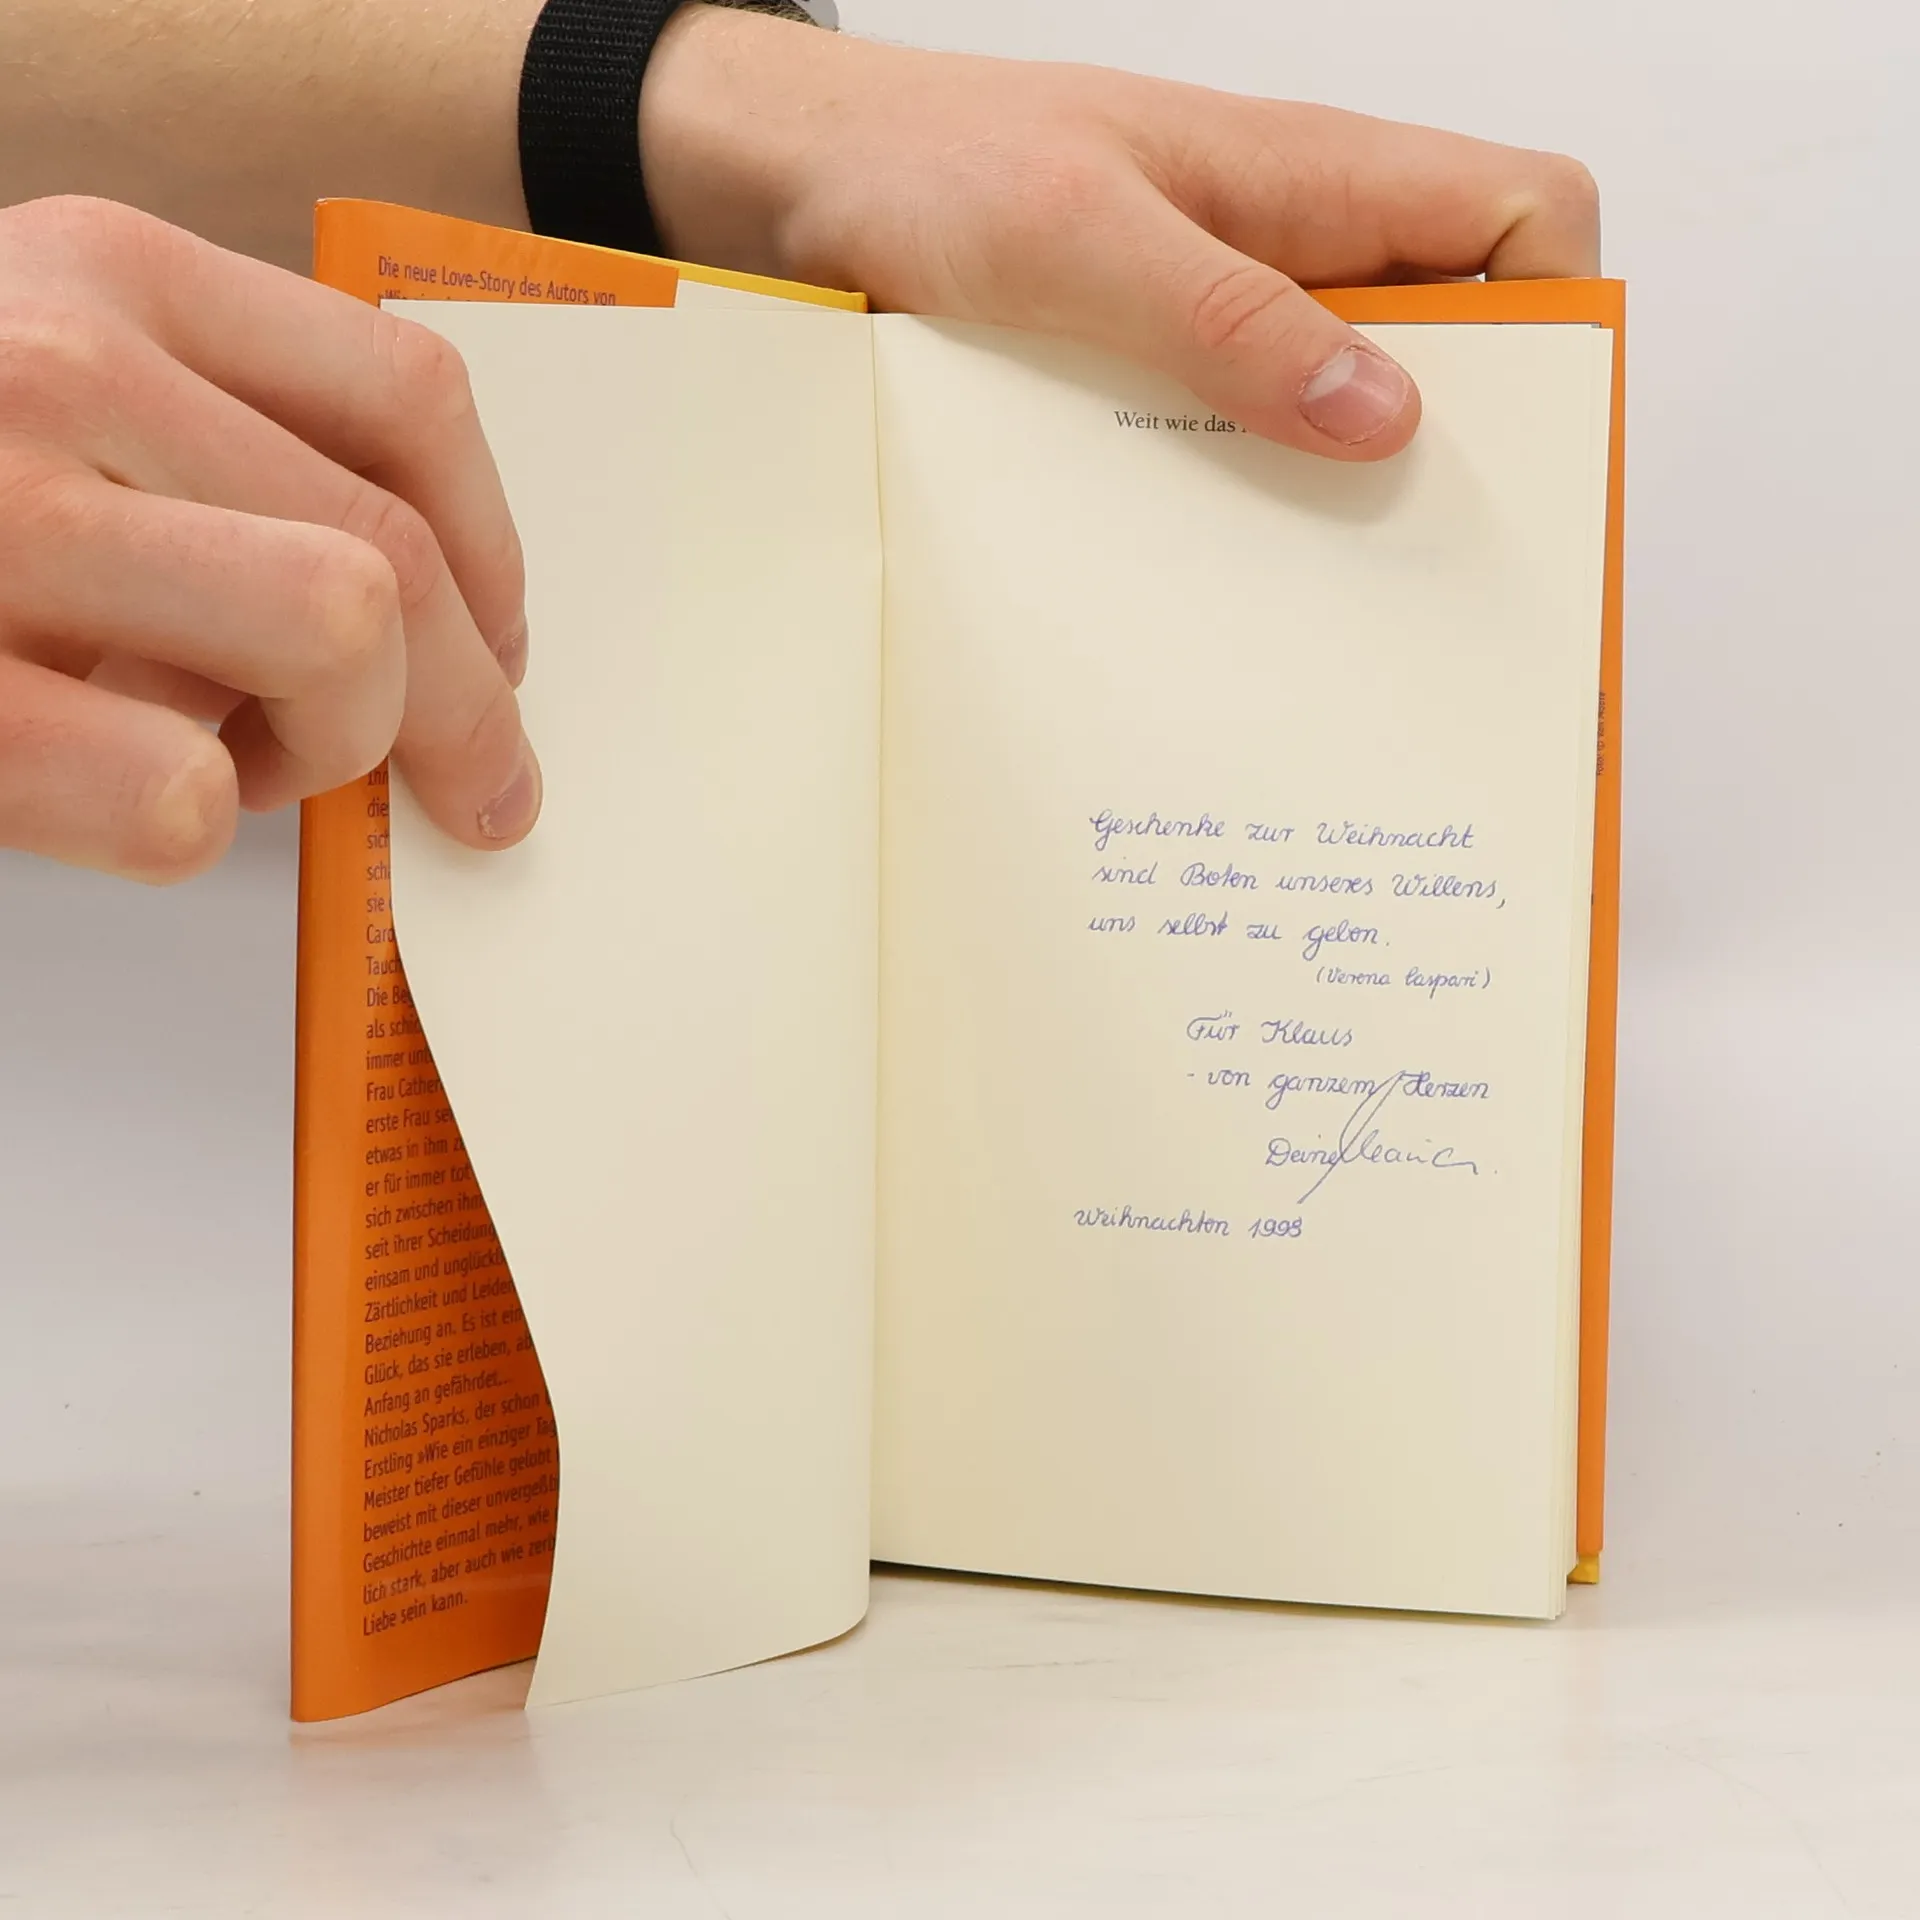 Die neue Love-Story des Autors von
die
sich
sie
Die
als
immer
Frau
erste Frau
etwas in ihm
er für immer tot
sich zwischen
seit ihrer Scheidung
einsam und
Zärtlichkeit und
Beziehung an. Es ist
Glück, das sie erleben,
Anfang an gefährdet...
Nicholas Sparks, der schon
Erstling »Wie ein einziger Tag
Meister tiefer Gefühle gelobt
beweist mit dieser
Geschichte einmal mehr, wie
lich stark, aber auch wie
Liebe sein kann.
Weit wie das
Geschenke zur Weihnacht
sind Boten unseres Willens,
uns selbst zu geben.
(Verena Caspari)
Für Klaus
- von ganzem Herzen
Deine
Weihnachten 1998